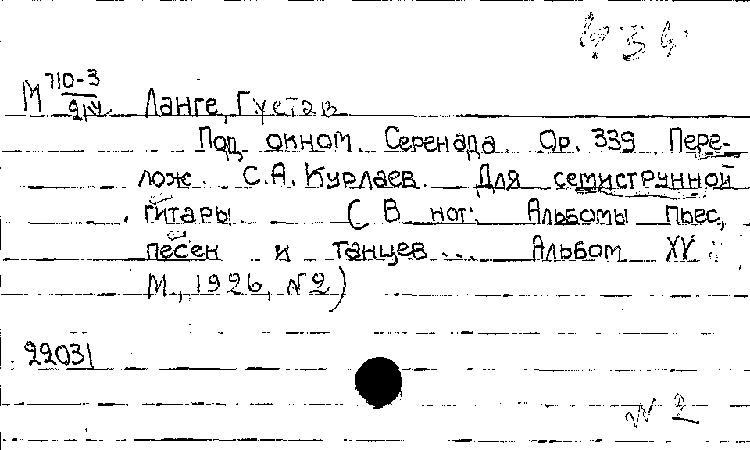 434
М 710-3 Ланге, Густав
Под окном. Серенада. Op. 339 Пере-
лож. С.А. Курлаев. Для семиструнной
гитары. (В нот: Альбомы пьес,
песен и танцев... Альбом XV.
М., 1926, №2)
22031
№ 2